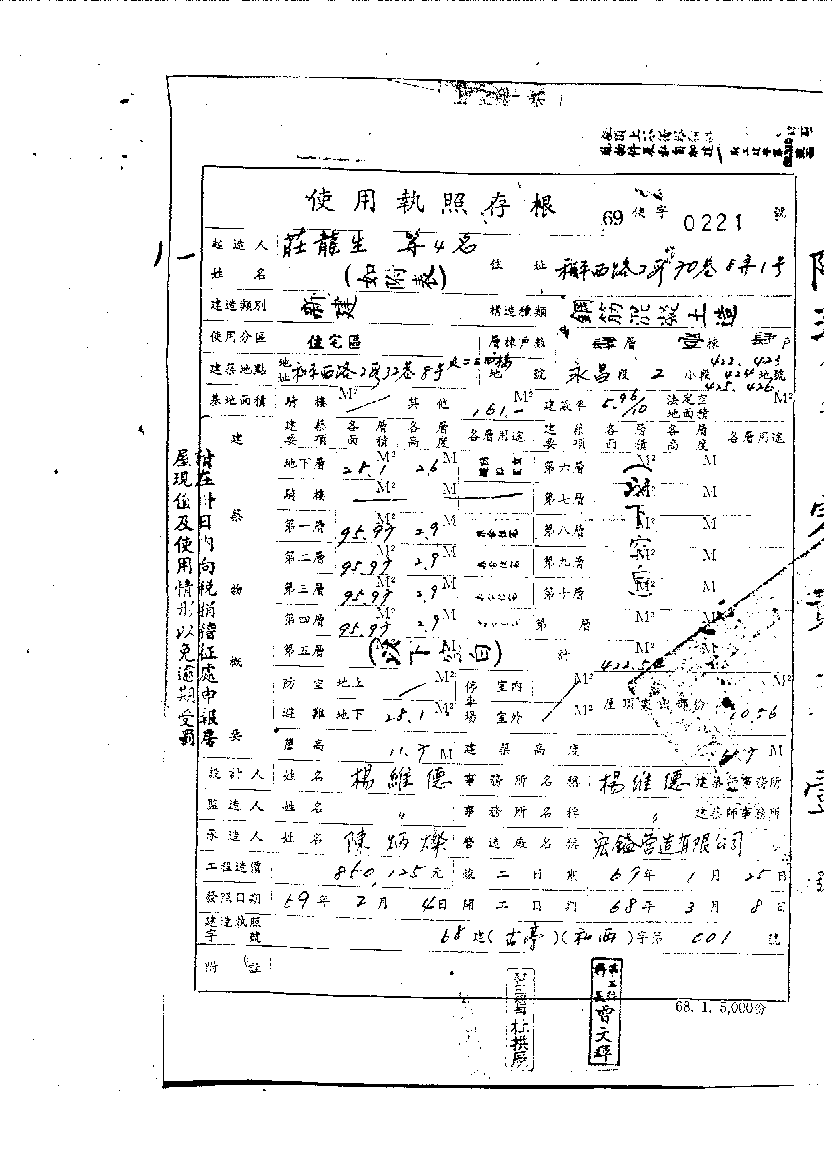 使用執照存根
69 使字 0221 號
起造人姓名 莊龍生 等4名 (如附表)
住址 和平西路2段70巷8弄1號
建造類別 新建 構造種類 鋼筋混凝土造
使用分區 住宅區 層棟戶數 肆層 壹棟 肆戶
建築地點 地址 和平西路2段32巷8號
地號 永昌段 2 小段 422.423 424 425.426 地號
基地面積 騎樓 M² 其他 161.- M² 建蔽率 5.96/10 法定空地面積 M²
建築物概要
建築要項 各層面積 各層高度 各層用途 建築要項 各層面積 各層高度 各層用途
地下層 28.1 M² 2.6 M 第六層 M² M
騎樓 M² M 第七層 M² M
第一層 95.97 M² 2.9 M 第八層 M² M
第二層 95.97 M² 2.9 M 第九層 M² M
第三層 95.97 M² 2.9 M 第十層 M² M
第四層 95.97 M² 2.9 M 第 層 M² M
第五層 (以下空白) M 計 M²
(以下空白)
防空避難 地上 M² 地下 28.1 M²
停車場 室內 M² 室外 M²
屋頂突出部份 10.56
簷高 11.7 M 建築高度 M
設計人 姓名 楊維德 事務所名稱 楊維德 建築師事務所
監造人 姓名 〃 事務所名稱 〃 建築師事務所
承造人 姓名 陳炳爍 營造廠名稱 宏鎰營造有限公司
工程造價 860,125元 竣工日期 69年 1月 25日
發照日期 69年 2月 4日 開工日期 68年 3月 8日
建造執照字號 68建(古亭)(和西)字第 001 號
附註
68. 1. 5,000份
曾文
請在卅日內向稅捐稽征處申報房
屋現值及使用情形以免逾期受罰